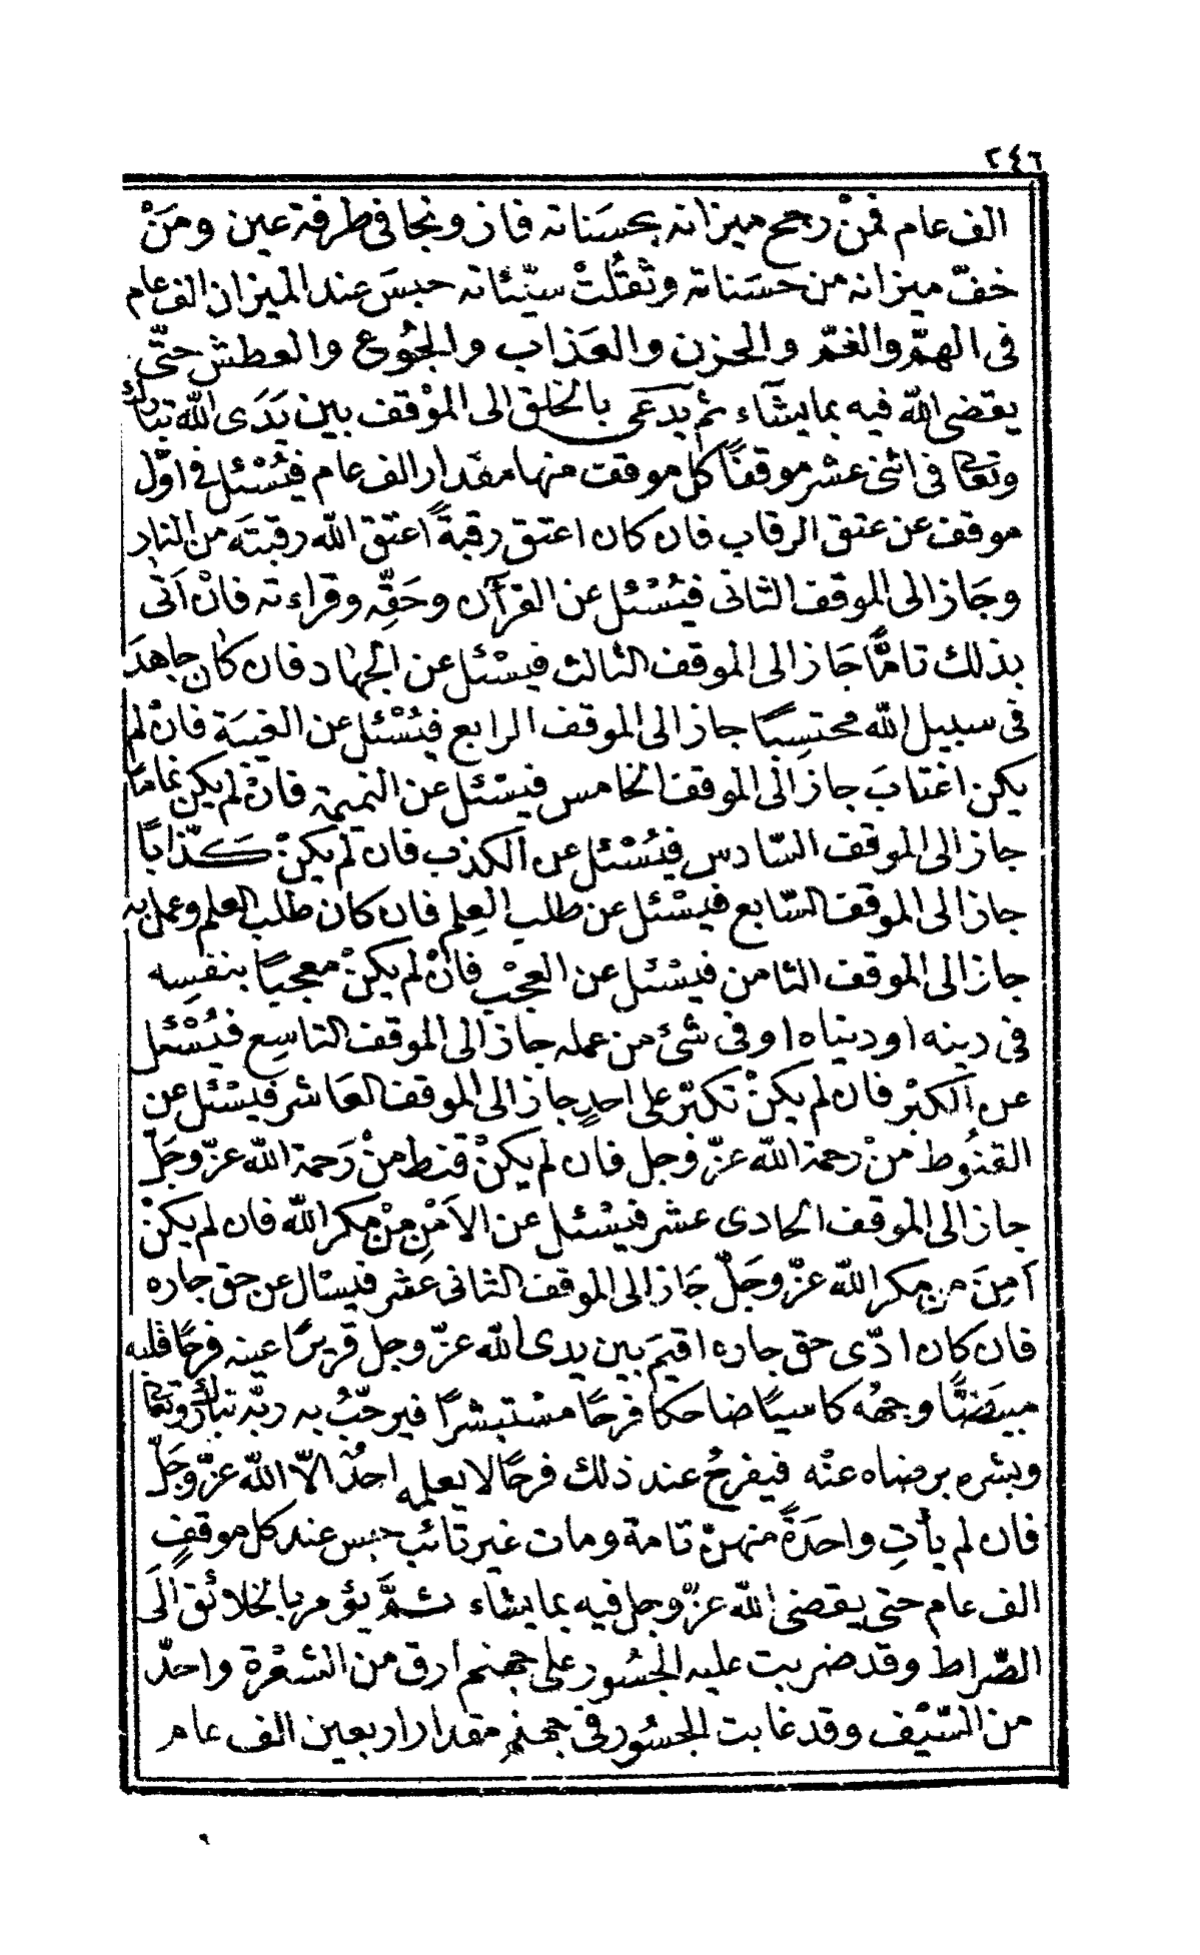 ٢٤٦
الف عام فمَنْ رجح ميزانه بحسَناته فاز ونجا فى طرفة عين ومَنْ
خفّ ميزانه من حسَناته وثقُلتْ سيّئاته حبسَ عند الميزان الف عام
فى الهمّ والغمّ والحزن والعَذاب والجُوع والعطش حتّى
يقضى الله فيه بما يشآء ثم يدعى بالخلق الى الموْقف بين يَدَى الله تبارك
وتعالى فى اثنى عشر موقفًا كل موقف منها مقدار الف عام فيُسْئل فى اوّل
موقف عن عتق الرقاب فان كان اعتق رقبةً اعتق الله رقبتَه من النار
وجَاز الى الموقف الثانى فيُسْئل عن القرآن وحَقِّه وقراءته فانْ اَتى
بذلك تامًّا جَاز الى الموقف الثالث فيسْئل عن الجهٰاد فان كان جاهدَ
فى سبيل الله محتسِبًا جاز الى الموقف الرابع فيُسْئل عن الغيبَة فانْ لم
يكن اغتابَ جاز الى الموقف الخامس فيسْئل عن النميمة فانْ لم يكن نمامًا
جاز الى الموقف السّادس فيُسْئل عن الكذب فان لم يكنْ كذّابًا
جاز الى الموقف السّابع فيسْئل عن طلب العِلم فان كان طلب العلم وعمل به
جاز الى الموقف الثامن فيسْئل عن العجْب فانْ لم يكنْ معجبًا بنفسِه
فى دينه او دنياه او فى شئ من عمله جاز الى الموقف التاسِع فيُسْئل
عن الكبْر فان لم يكنْ تكبّر على احدٍ جاز الى الموقف العَاشر فيسْئل عن
القنُوط منْ رحمة الله عزّ وجل فان لم يكنْ قنط منْ رَحمة الله عزّ وجَلّ
جاز الى الموقف الحادى عشر فيسْئل عن الاَمْنِ مِنْ مكر الله فان لم يكنْ
اَمِنَ من مكر الله عزّ وجَلّ جَاز الى الموقف الثانى عَشر فيسْال عن حق جاره
فان كان ادّى حق جاره اقيمَ بين يدى الله عزّ وجل قريرًا عينه فرحًا قلبه
مبيَضًّا وجهُه كاسيًا ضاحكا فرحًا مسْتبشرًا فيرحّبُ به ربّه تبارك وتعالى
وبشره برضاه عنْه فيفرحُ عند ذلك فرحًا لا يعلمه احدٌ الاّ الله عزّ وجَلّ
فان لم يأتِ واحدَةً منهنّ تامة ومات غير تائب حبس عند كل موقفٍ
الف عام حتى يقضى الله عزّ وجل فيه بما يشاء ثمَّ يؤمر بالخلائق الَى
الصّراط وقد ضربت عليه الجسُور على جهنم ارق من الشعْرة واحدّ
من السّيْف وقد غابت الجسُور فى جهنم مقدار اربعين الف عام